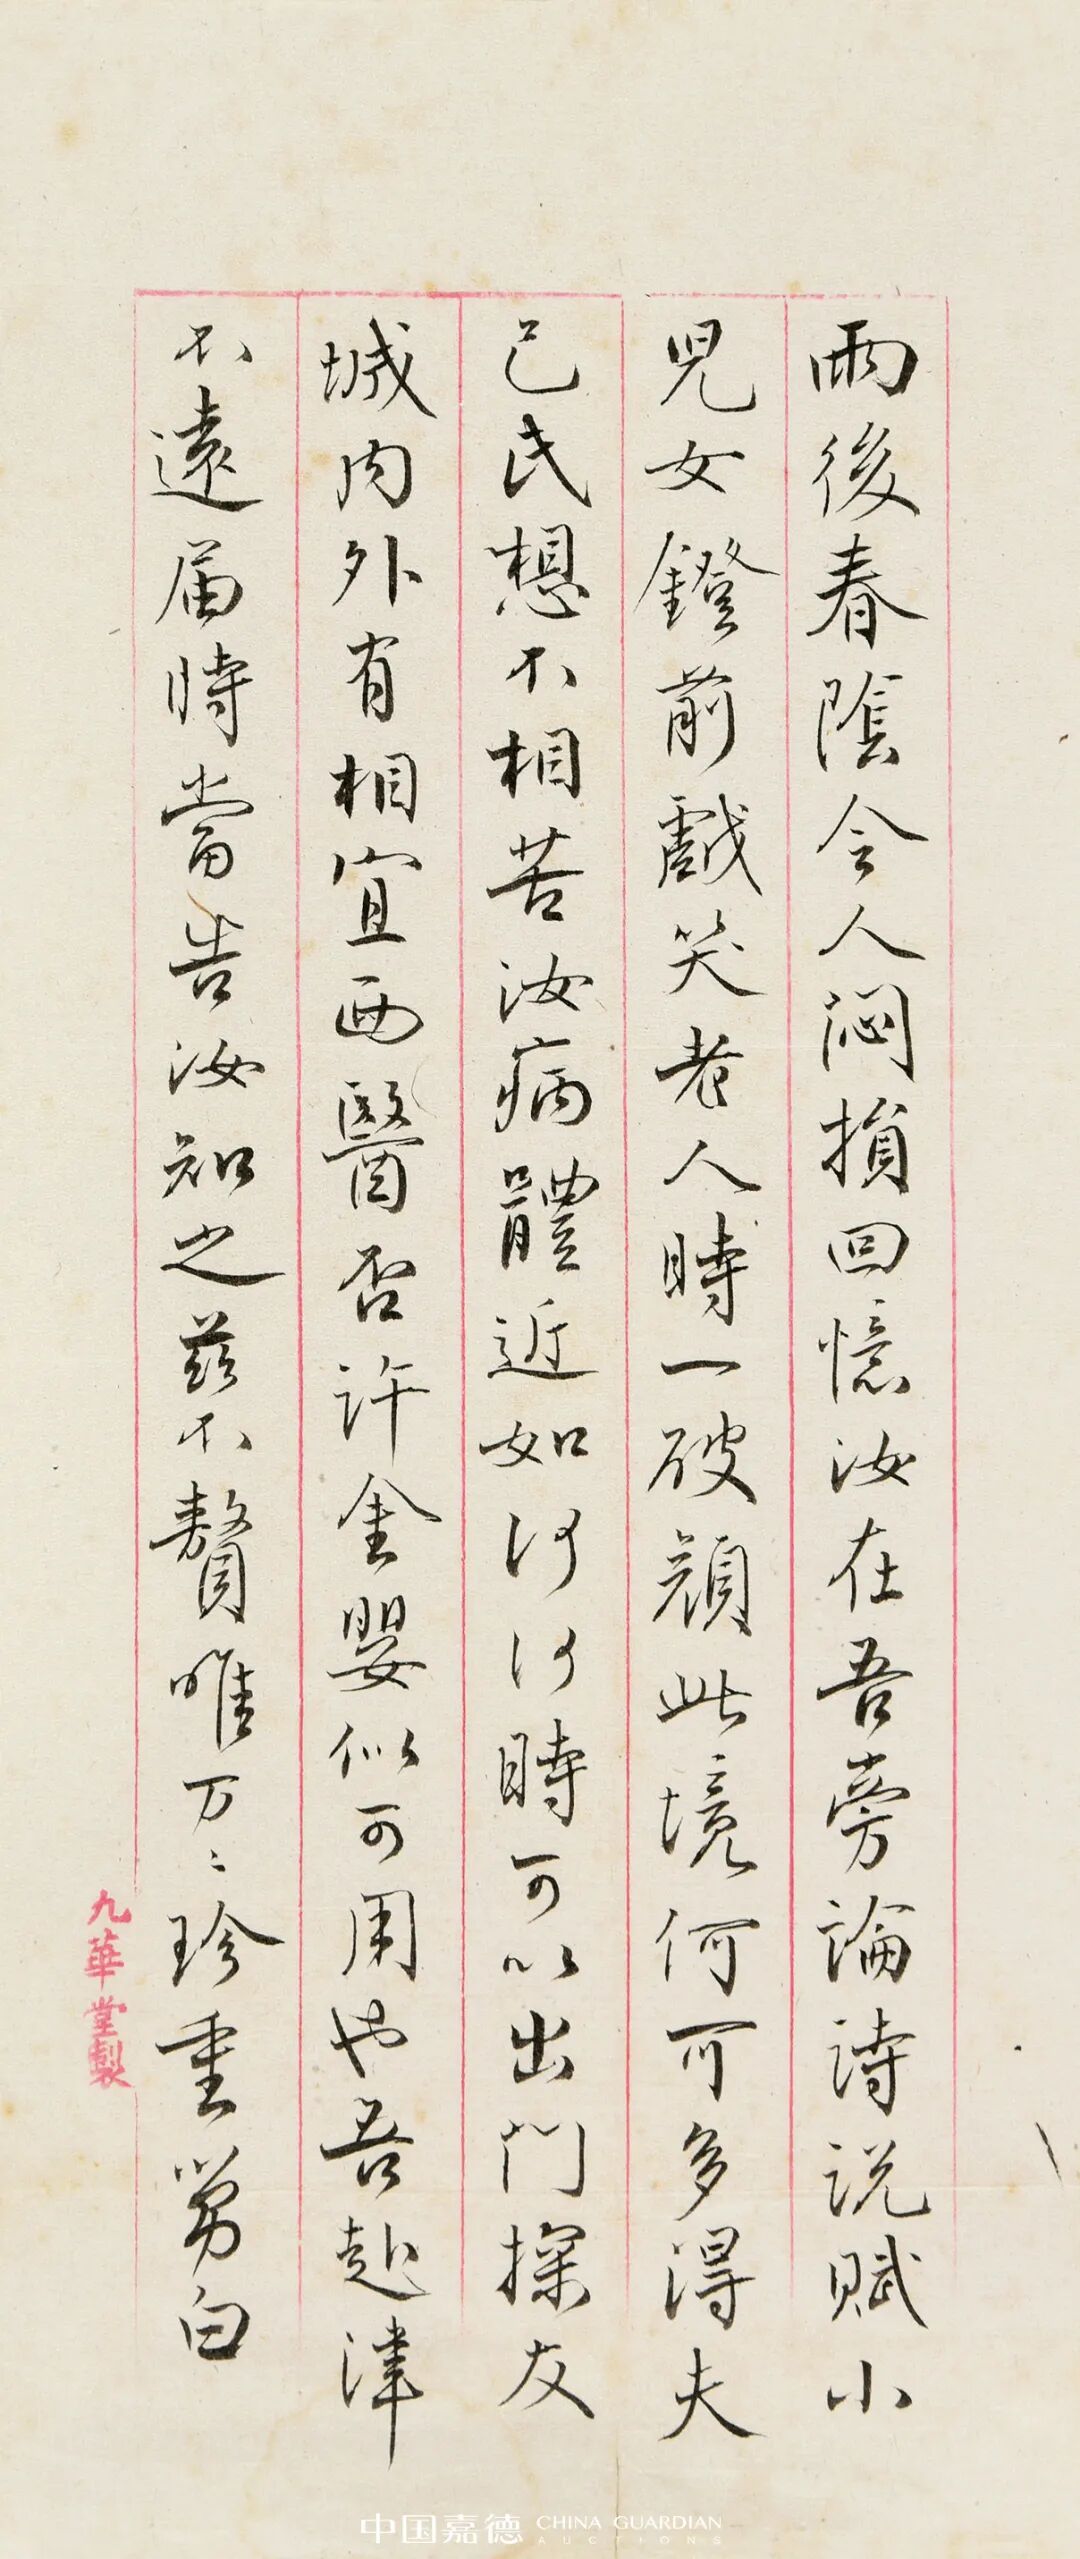 雨後春陰令人悶損回憶汝在吾旁論詩説賦小
兒女鐙前戲笑老人時一破顔此境何可多得夫
己氏想不相苦汝病體近如何何時可以出門探友
城内外有相宜西醫否許金嬰似可用也吾赴津
不遠届時當告汝知之兹不贅唯万〻珍重勞白
九華堂製
中国嘉德 CHINA GUARDIAN AUCTIONS